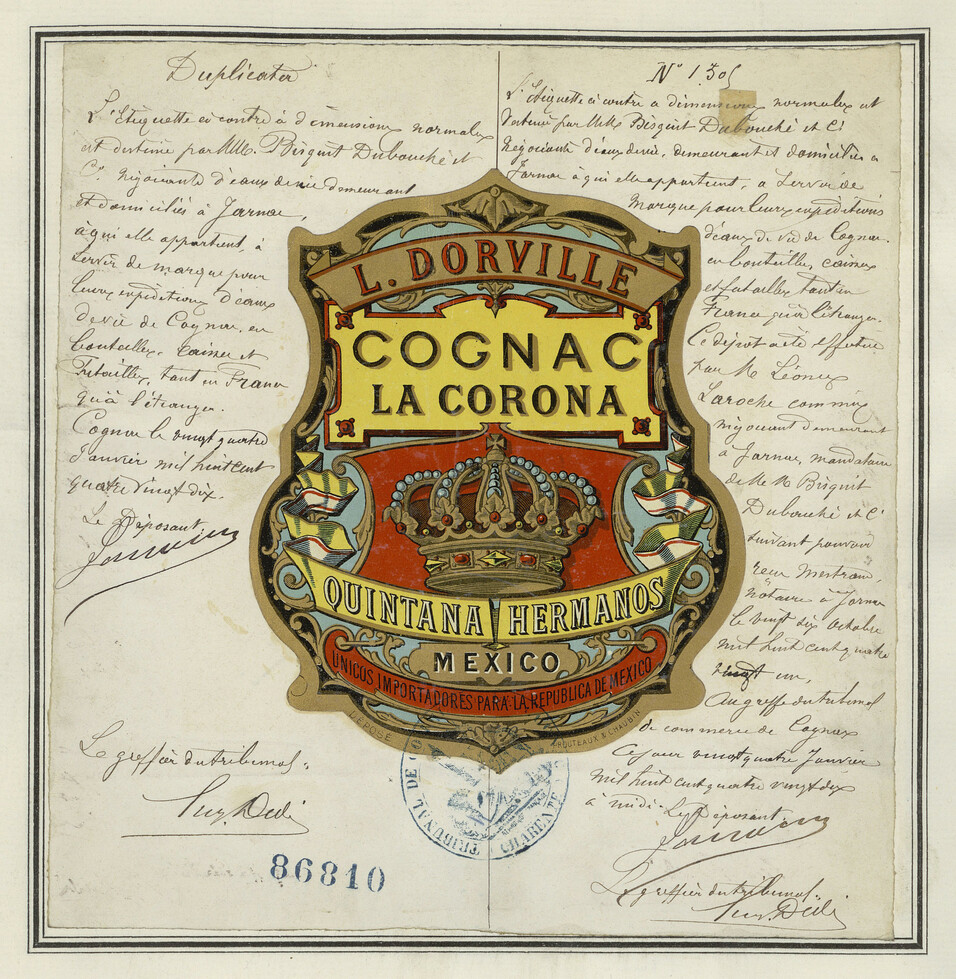 Duplicata
L'Etiquette ci contre à dimensions normales
est destinée par MM. Bisquit Dubouché et
Cie négociants d'eaux de vie demeurant
et domiciliés à Jarnac,
à qui elle appartient, à
servir de marque pour
leurs expéditions d'eaux
de vie de Cognac, en
bouteilles, caisses et
futailles, tant en France
qu'à l'étranger.
Cognac le vingt quatre
Janvier mil huit cent
quatre vingt dix.
Le Déposant
Le greffier du tribunal
86810
L. DORVILLE
COGNAC
LA CORONA
QUINTANA HERMANOS
MEXICO
UNICOS IMPORTADORES PARA LA REPUBLICA DE MEXICO
DÉPOSÉ
TRIBUNAL DE
CHARENTE
N° 1305
L'Etiquette ci contre a dimensions normales est
destinée par MM. Bisquit Dubouché et Cie
négociants d'eaux de vie, demeurant et domiciliés a
Jarnac à qui elle appartient, a servir de
marque pour leurs expéditions
d'eaux de vie de Cognac.
en bouteilles, caisses
et futailles tant en
France qu'à l'étranger.
Ce dépot a été effectué
par M. Léonce
Laroche commis
négociant demeurant
à Jarnac, mandataire
de MM Bisquit
Dubouché et Cie
suivant pouvoir
reçu Mestreau,
notaire à Jarnac
le vingt dix octobre
mil huit cent quatre
vingt un,
Au greffe du tribunal
de commerce de Cognac
Ce jour vingt quatre Janvier
mil huit cent quatre vingt dix
à midi. Le Déposant
Le greffier du tribunal